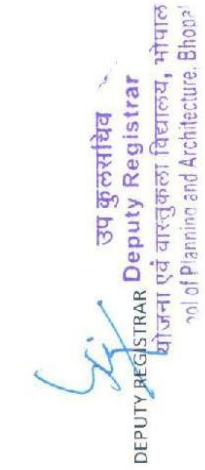 उप कुलसचिव
Deputy Registrar
DEPUTY REGISTRAR
योजना एवं वास्तुकला विद्यालय, भोपाल
ool of Planning and Architecture, Bhopal